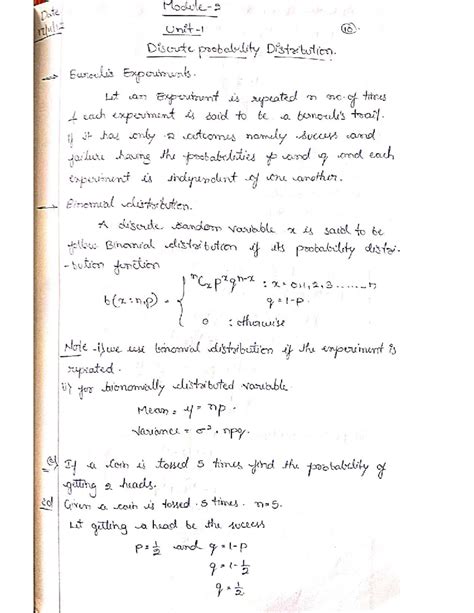 Date
Module-2
Unit-1
10
Discrete probability Distribution.
→ Bernoulis Experiments.
Let an Experiment is repeated n no. of times
& each experiment is said to be a bernoulis trail.
if it has only 2 outcomes namely success and
failure having the probabilities p and q and each
experiment is independent of one another.
→ Binomial distribution.
A discrete random variable x is said to be
follow Binomial distribution if its probability distri-
-bution function
b(x:n,p) = { ⁿCₓ pˣ qⁿ⁻ˣ : x = 0,1,2,3 ......n
q = 1-p
0 : otherwise
Note -i) we use binomial distribution if the experiment is
repeated.
ii) for bionomially distributed variable
Mean = μ = np.
Variance = σ². npq.
If a coin is tossed 5 times find the probability of
getting 2 heads.
Given a coin is tossed 5 times. n=5.
Let getting a head be the success
p = 1/2 and q = 1-p
q = 1-1/2
q = 1/2